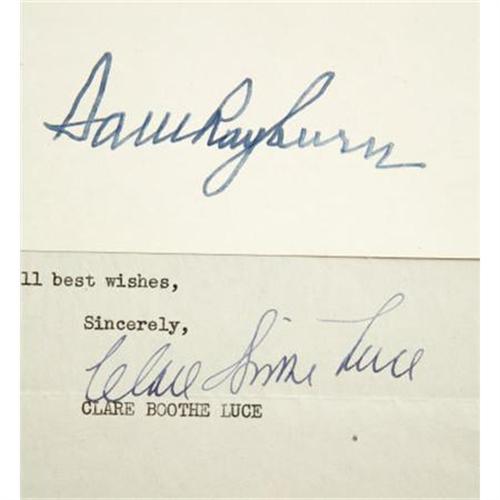 Sam Rayburn
ll best wishes,
Sincerely,
Clare Boothe Luce
CLARE BOOTHE LUCE